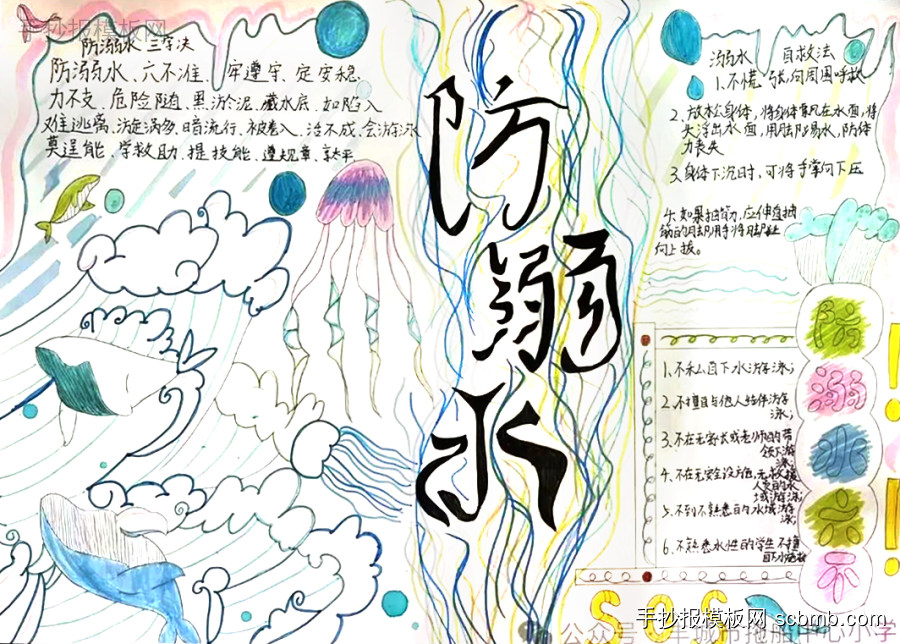 手抄报模板网
防溺水 三字诀
防溺水、六不准、牢遵守、定安稳.
力不支、危险随、黑淤泥、藏水底、如陷入
难逃离、漩涡匆、暗流行、被卷入、治不成、会游泳
莫逞能、学救助、提技能、遵规章、享太平
防
溺
水
溺水 自救法
1.不慌 张,向周围呼救
2.放松身体,将身体飘浮在水面,将
头浮出水面,用脚踢水,防体
力丧失
3.身体下沉时,可将手掌向下压
4.如果抽筋,应伸直抽
筋的用手将脚趾
向上拔。
防
溺
水
六
不
1、不私自下水游泳;
2.不擅自与他人结伴游
泳;
3.不在无家长或老师的带
领下游
泳;
4.不在无安全设施,无救援
人员的水
域游泳;
5.不到不熟悉的水域游
泳;
6.不熟悉水性的学生不擅
自下水施救
SOS
公众号
手抄报模板网 scbmb.com